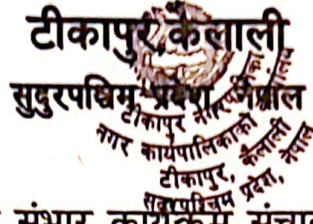 टीकापुर, कैलाली
सुदुरपश्चिम प्रदेश, नेपाल
टीकापुर
नगर कार्यपालिकाको
टीकापुर, कैलाली
सुदूरपश्चिम प्रदेश, नेपाल
संभार कार्यक्रम